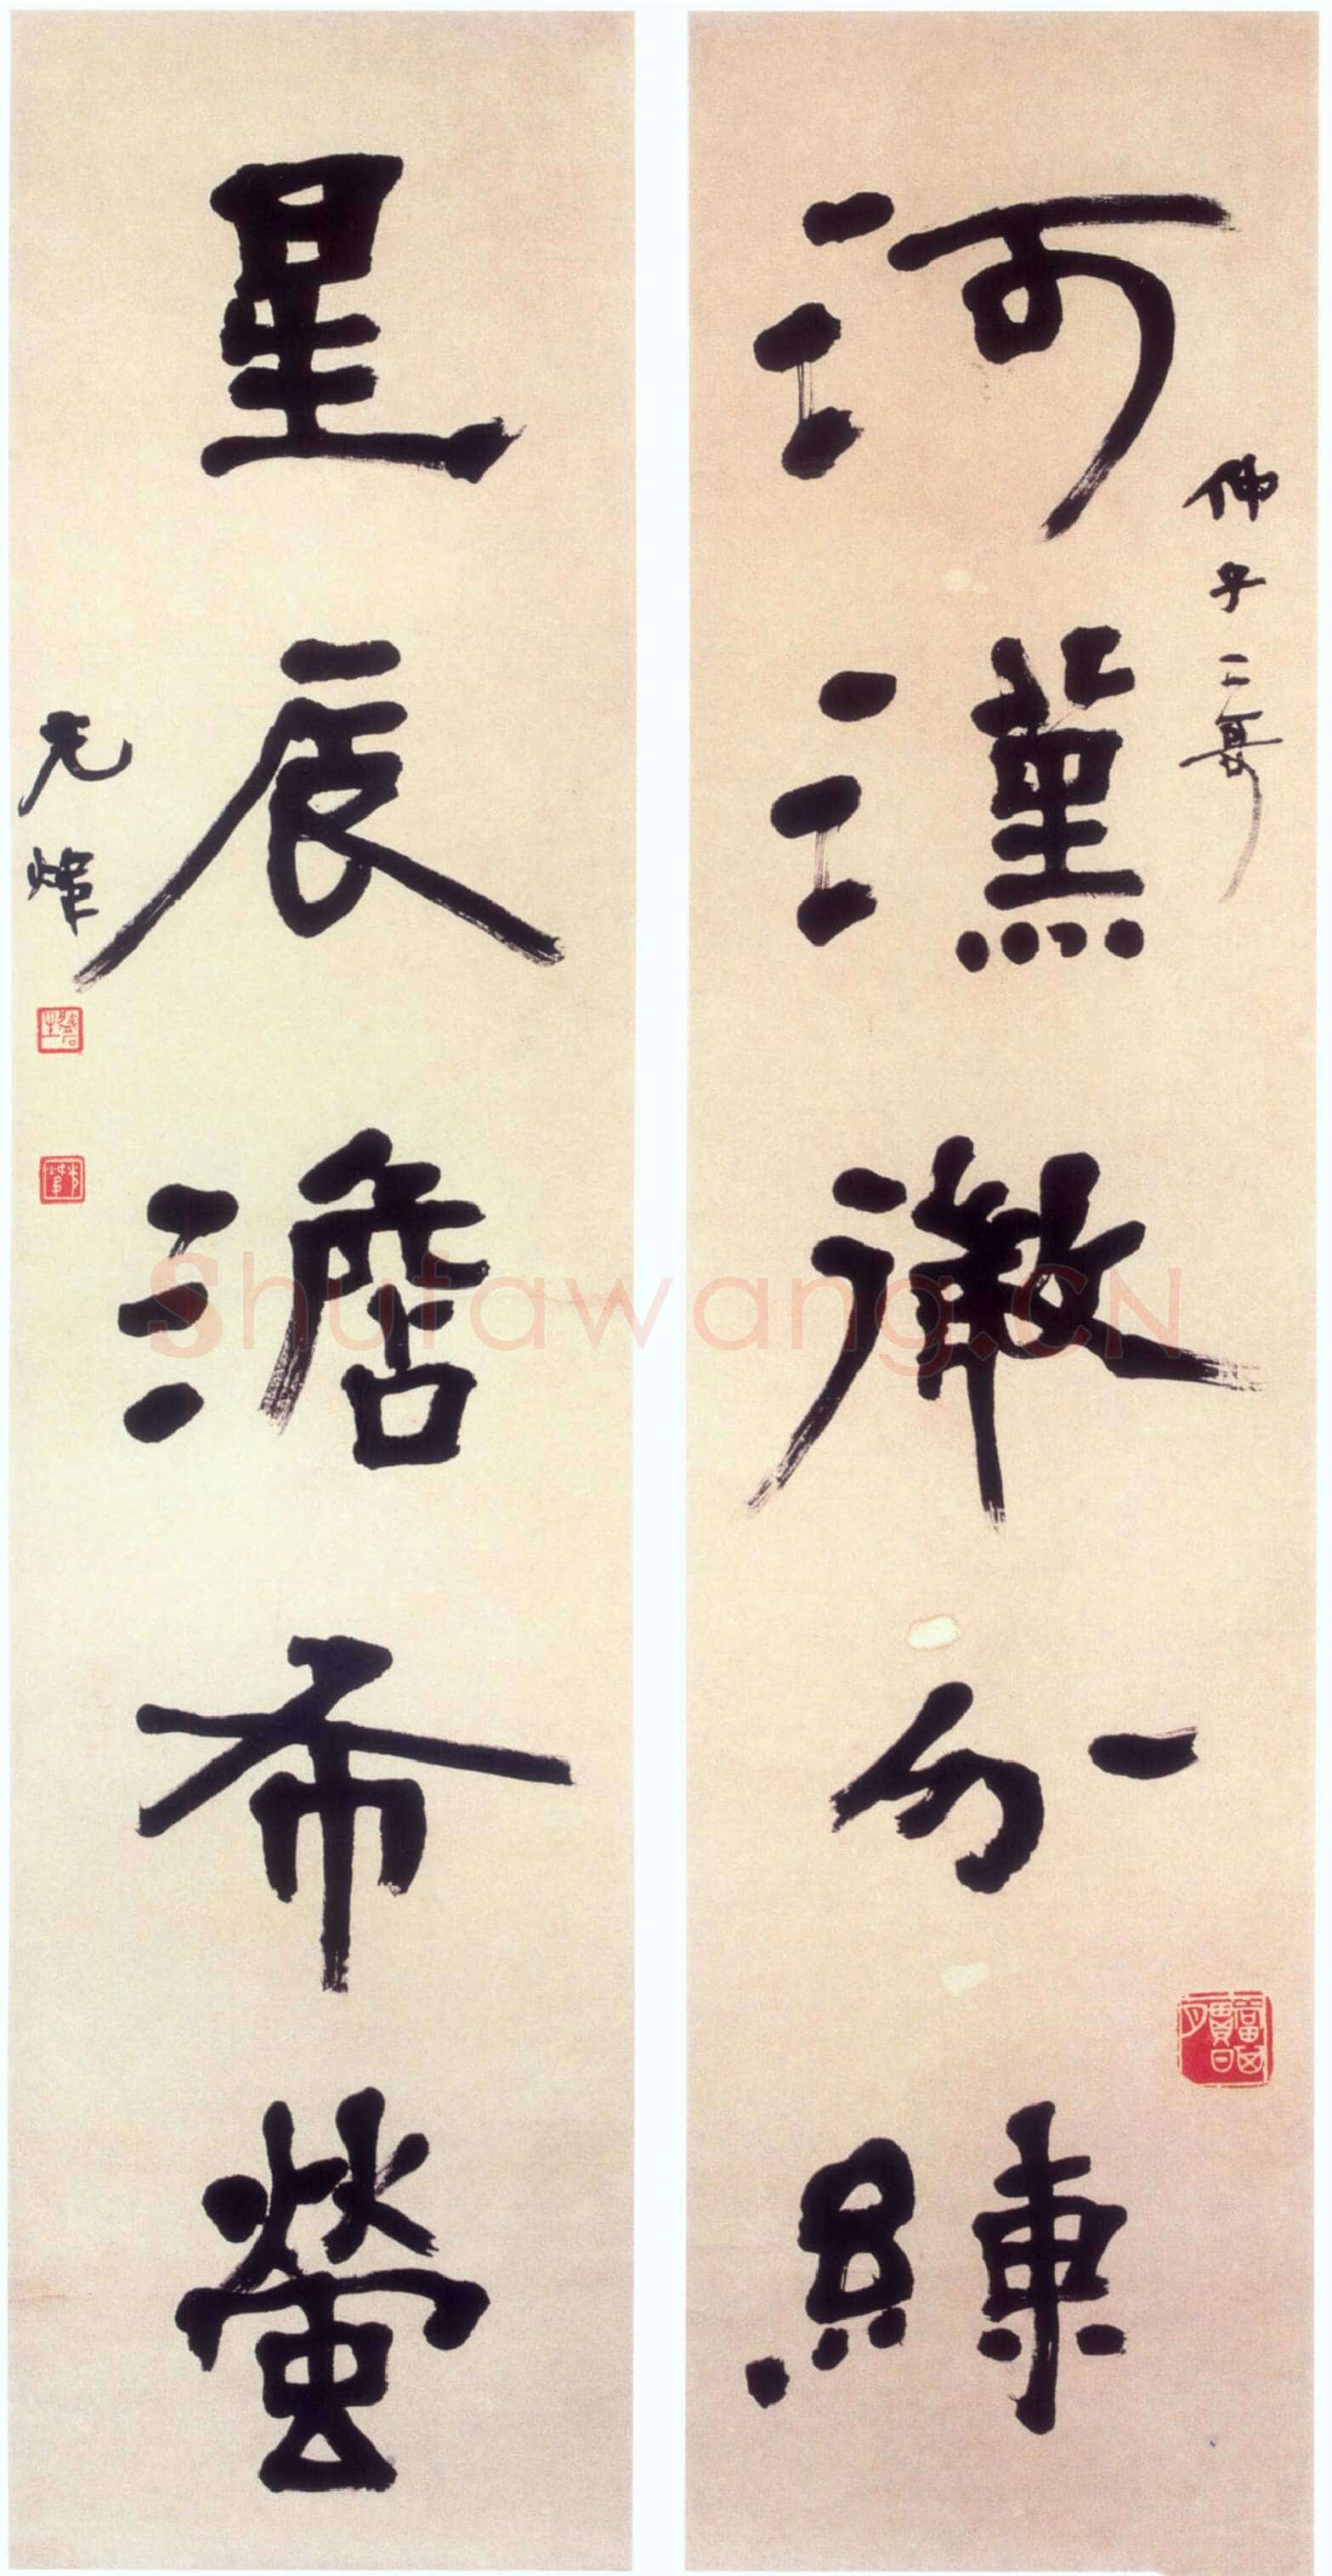 河漢微分練
星辰澹布螢
光煒
Shufawang.CN